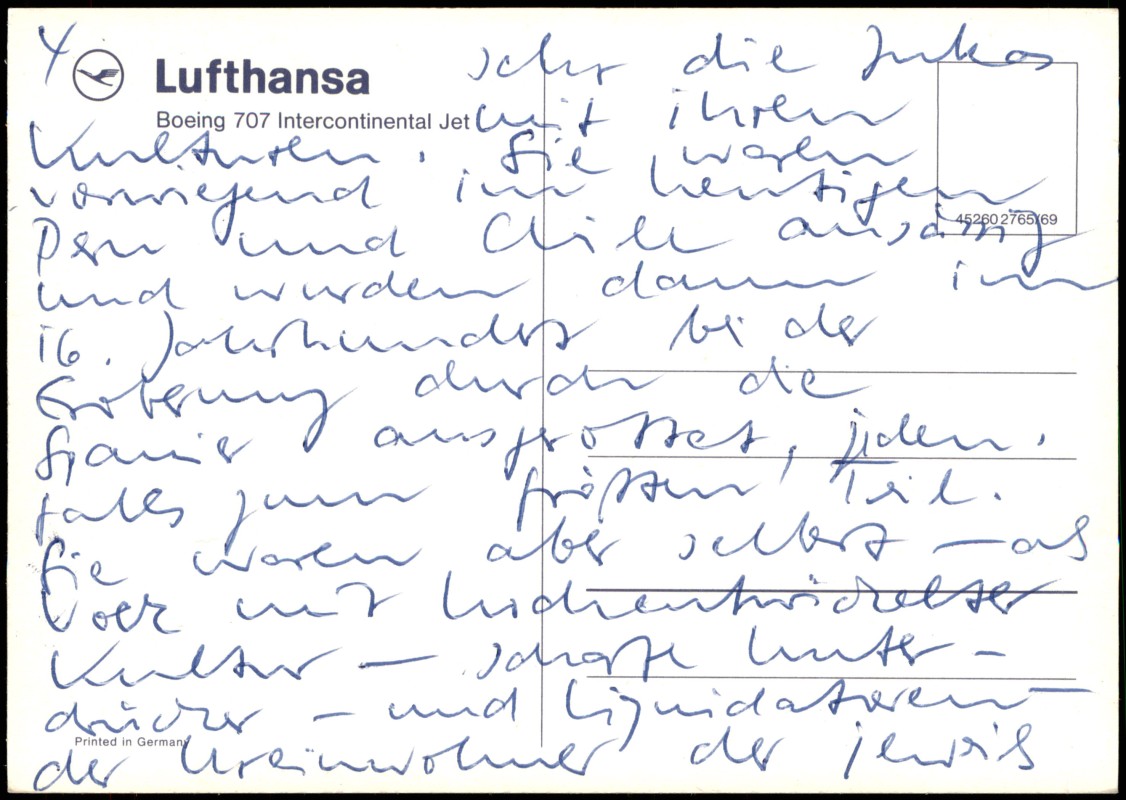 4
Lufthansa
Boeing 707 Intercontinental Jet
452602765/69
sehr die Inkas
mit ihren
Kulturen. Sie waren
vorwiegend im heutigen
Peru und Chile ansässig
und wurden dann im
16. Jahrhundert bei der
Eroberung durch die
Spanier ausgerottet, jeden-
falls zum größten Teil.
Sie waren aber selbst – als
Volk mit hochentwickelter
Kultur – scharfe Unter-
drücker – und Liquidatoren
der Ureinwohner der jeweils
Printed in Germany